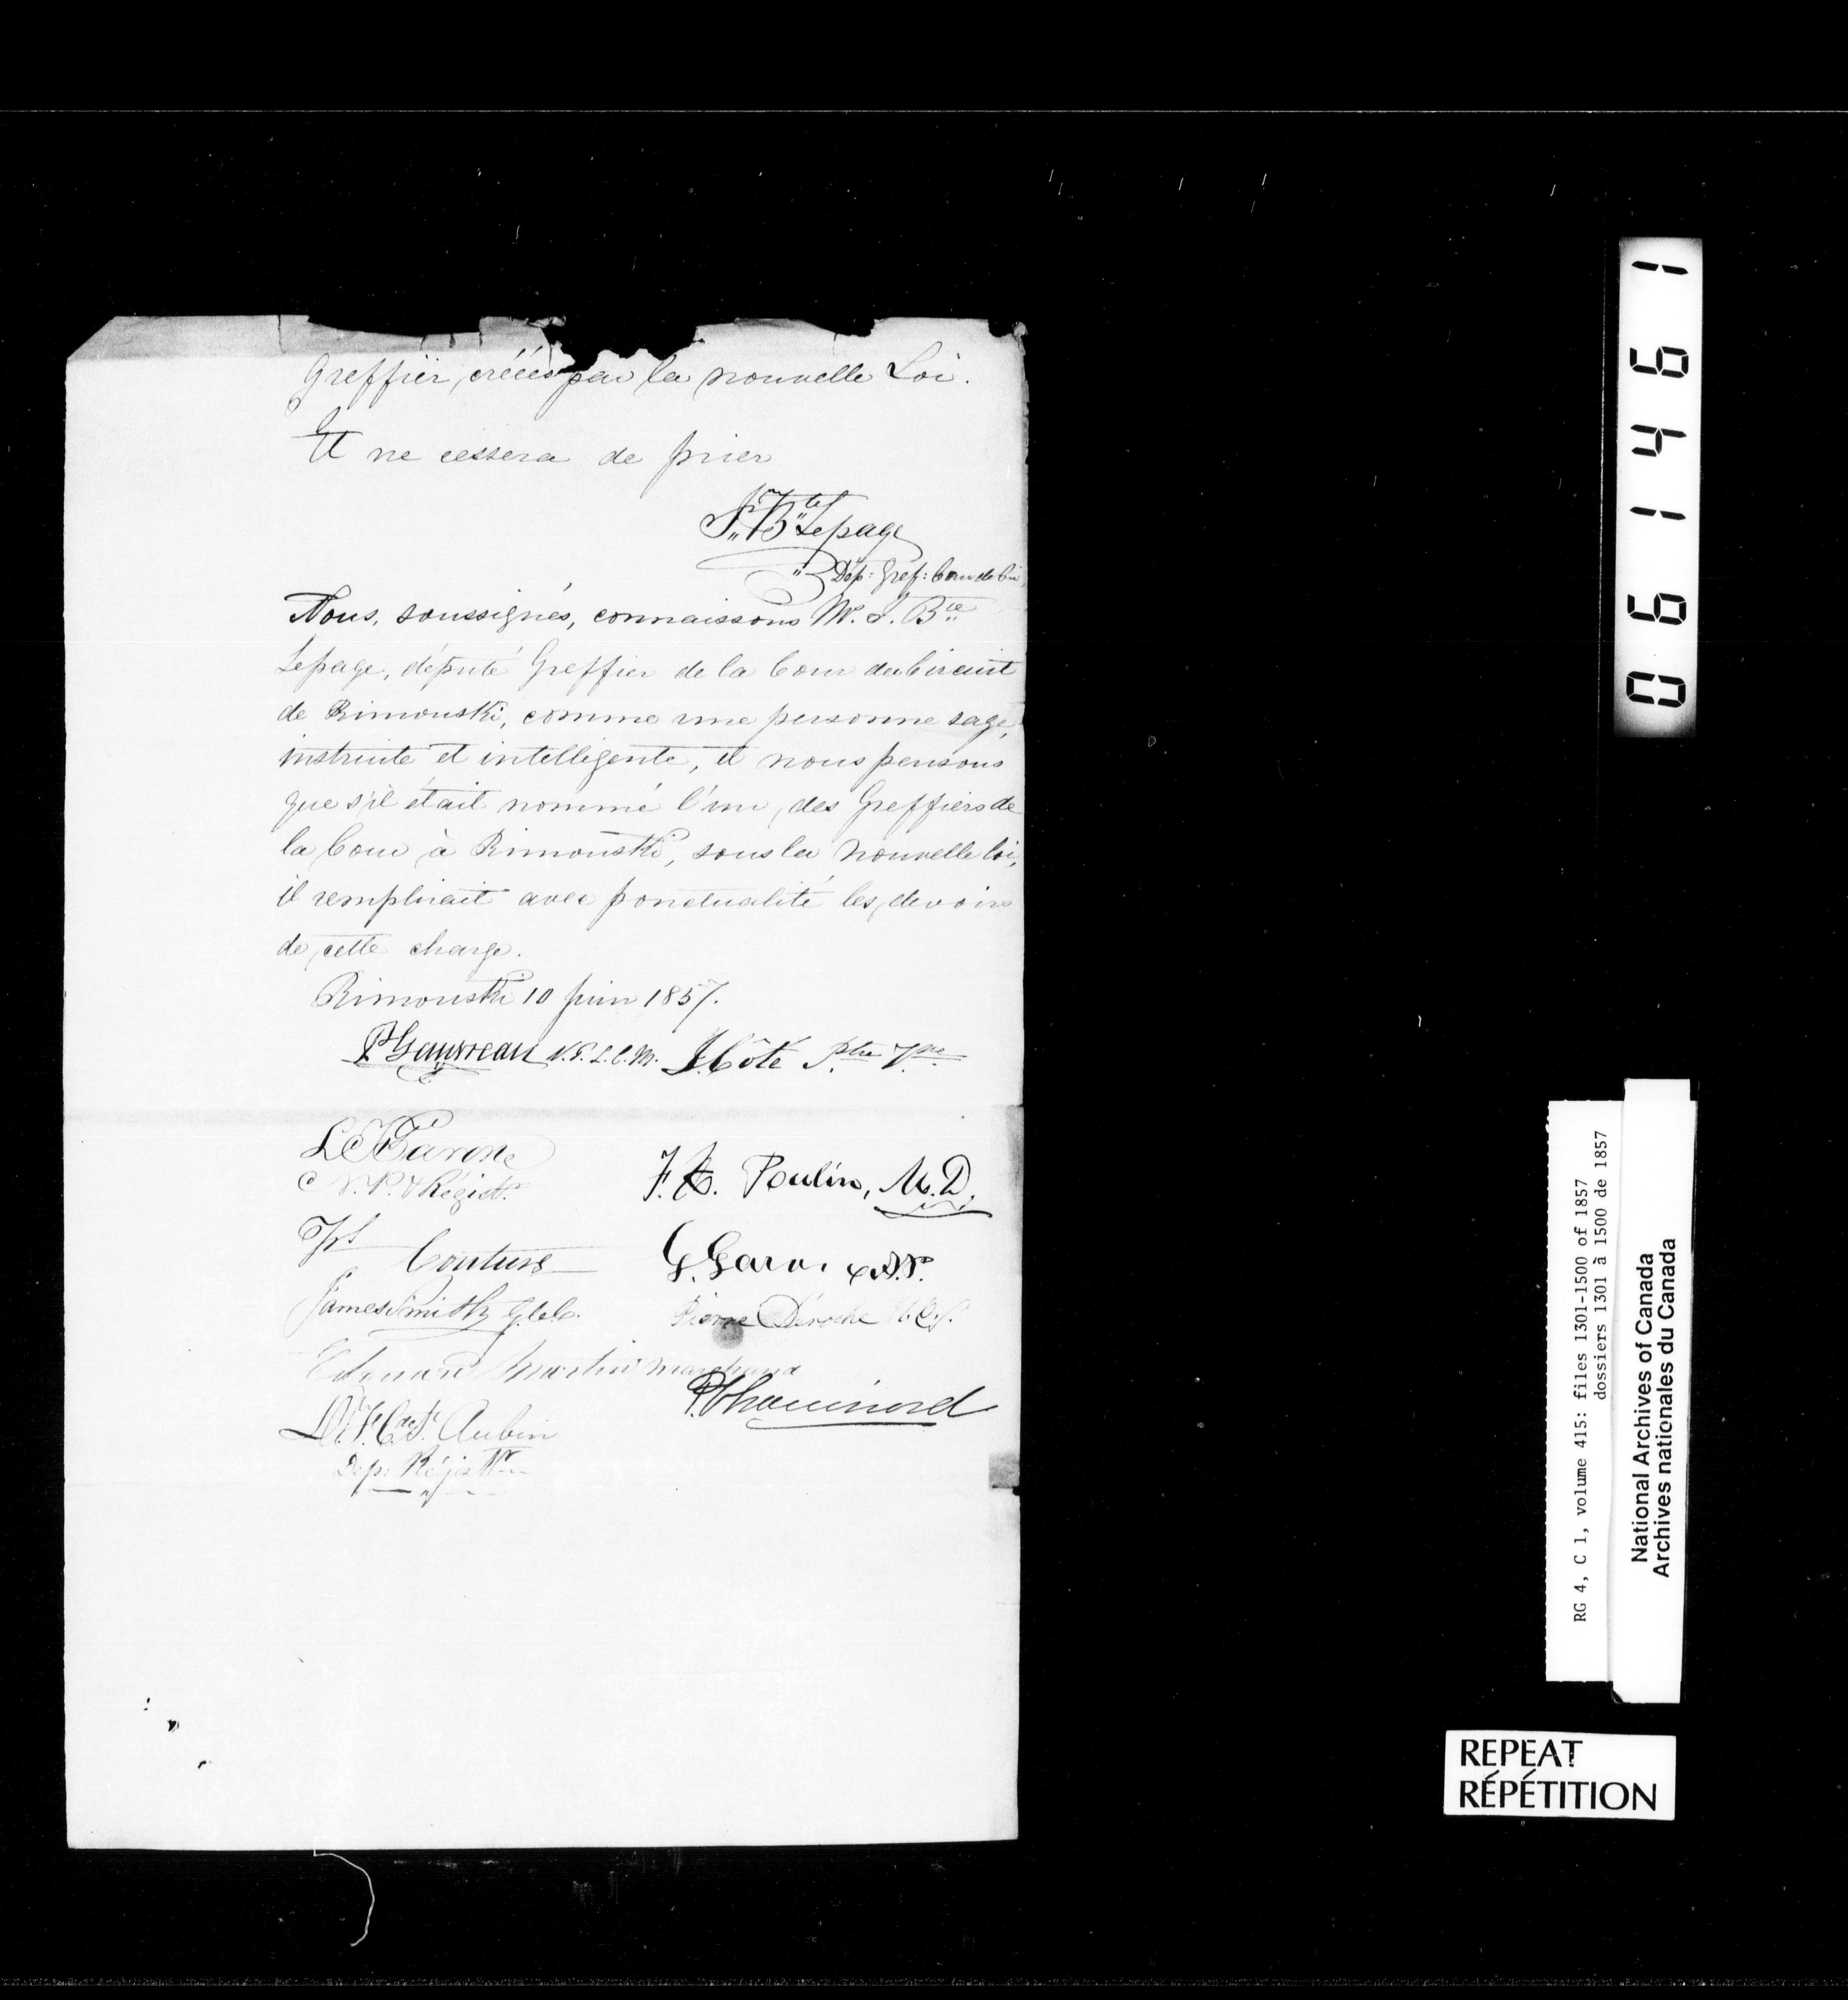 Greffier, créées par la nouvelle Loi.
Et ne cessera de prier
Jn Bte Lepage
Dép: Gref: Cour de Cir
Nous, soussignés, connaissons Mr. J. Bte
Lepage, député Greffier de la Cour du Circuit
de Rimouski, comme une personne sage,
instruite et intelligente, et nous pensons
que s'il était nommé l'un des Greffiers de
la Cour à Rimouski, sous la nouvelle loi,
il remplirait avec ponctualité les devoirs
de cette charge.
Rimouski 10 Juin 1857.
P Gauvreau J. Côté Ptre
L C Garon
N.P. & Régistr.
F. A. Poulin, M.D.
Couture
G. Garon
James Smith
Pierre Deroche
Edouard Martin Marchand
P. Chouinard
St. Aubin
Dép: Régistr
0 6 1 4 6 1
RG 4, C 1, volume 415: files 1301-1500 of 1857
dossiers 1301 à 1500 de 1857
National Archives of Canada
Archives nationales du Canada
REPEAT
RÉPÉTITION